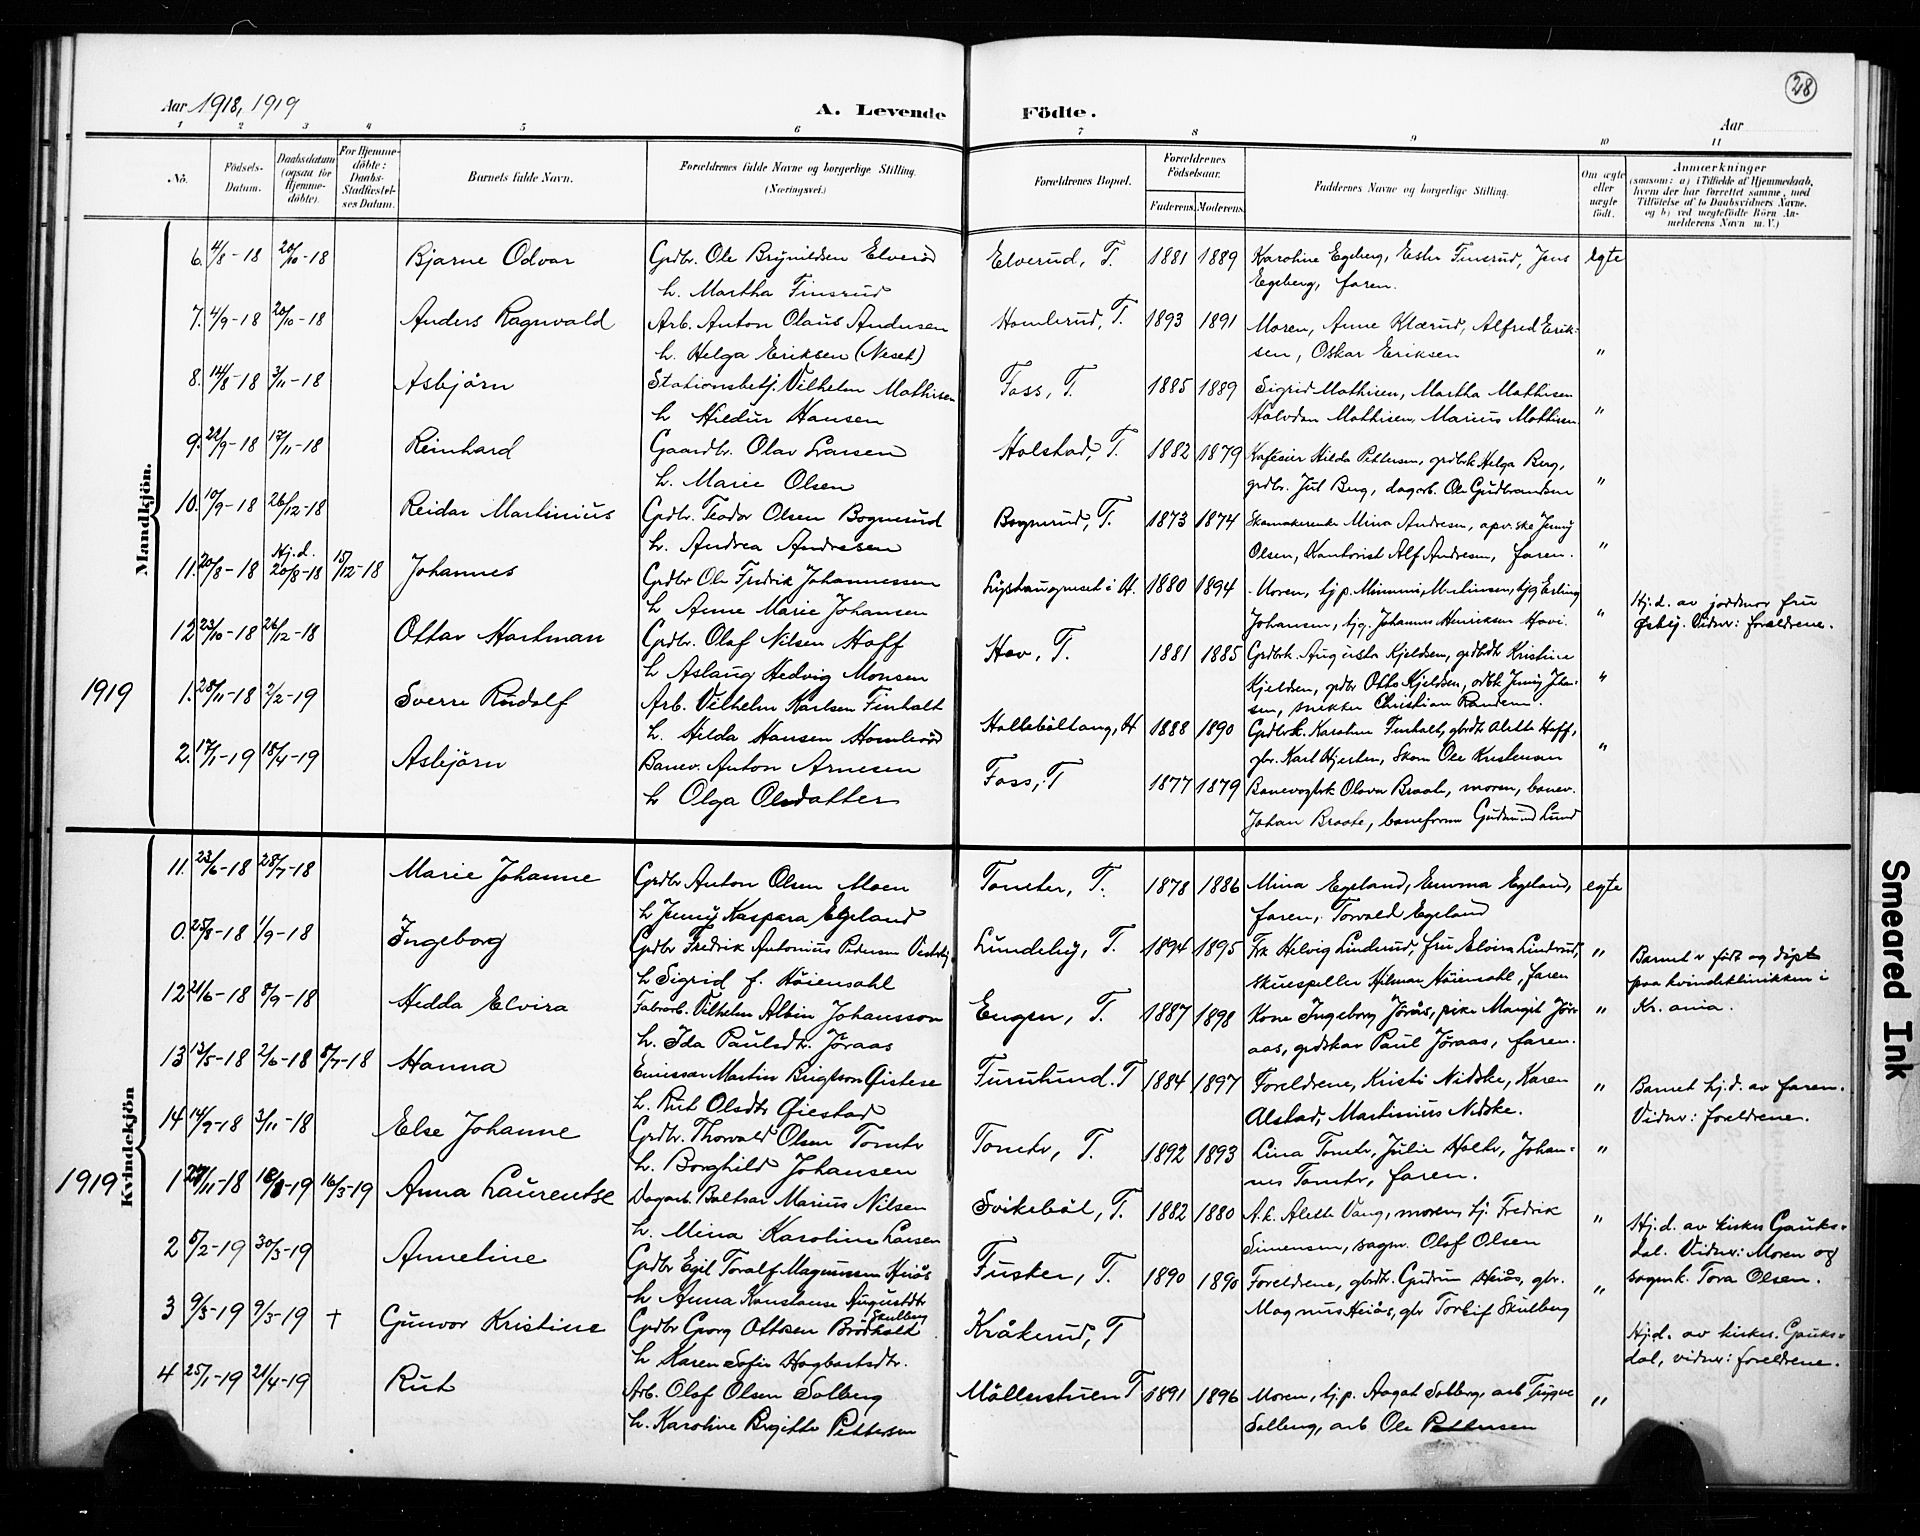 28
Aar 1918, 1919
A. Levende Födte.
Aar
1 2 3 4 5 6 7 8 9 10 11
No.
Födsels-Datum.
Daabsdatum (ogsaa for Hjemme-döbte).
For Hjemme-döbte: Daabs-Stadfæstel-ses Datum.
Barnets fulde Navn.
Forældrenes fulde Navne og borgerlige Stilling. (Næringsvei.)
Forældrenes Bopæl.
Forældrenes Födselsaar.
Faderens. Moderens.
Faddernes Navne og borgerlige Stilling.
Om ægte eller uægte födt.
Anmærkninger
(saasom: a) i Tilfælde af Hjemmedaab, hvem der har forrettet samme, med Tilföielse af to Daabsvidners Navne. og b) ved uægtefödte Börn An-melderens Navn m. V.)
Mandkjön.
6. 4/8-18 20/10-18 Bjarne Odvar Grdbr. Ole Brynildsen Elverød Elverud, T. 1881 1889 Karoline Egeberg, Ester Finsrud, Jens egte
h. Martha Finsrud Egeberg, faren.
7. 4/9-18 20/10-18 Anders Ragnvald Arb. Anton Olaus Andersen Homlerud, T. 1893 1891 Moren, Anne Klærud, Alfred Erik-
h. Helga Eriksen (Neset) sen, Oskar Eriksen "
8. 14/8-18 3/11-18 Asbjörn Stationsbetj. Vilhelm Mathisen Foss, T. 1885 1889 Sigrid Mathisen, Martha Mathisen
h. Hildur Hansen Halvdan Mathisen, Marius Mathisen. "
9. 22/9-18 17/11-18 Reinhard Gaardbr. Olav Larsen Holstad, T. 1882 1879 Hilda Pettersen, grdbrk Helga Berg,
h. Marie Olsen grdbr. Jul Berg, dagarb. Ole Gudbrandsen "
10. 10/9-18 26/12-18 Reidar Martinius Grdbr. Teodor Olsen Bognerud Bognerud, T. 1873 1874 Mina Andresen, Jenny
h. Andrea Andresen Olsen, Kontorist Alf Andresen, faren. "
11. 20/8-18 Hj.d. 20/8-18 15/12-18 Johannes Grdbr Ole Fredrik Johannessen i H. 1880 1894 Moren, tj.p. Minni Martinsen, tjg Erling
h Anne Marie Johansen Johansen, tjg. Johannes Henriksen Hovi. " Hj.d. av jordmor fru
Østby. Vidner: foreldrene.
12 23/10-18 26/12-18 Ottar Hartman Grdbr. Olof Nilsen Hoff Hov, T. 1881 1885 Grdbrk. Augusta Kjeldsen, Kristine
h Aslaug Hedvig Monsen Kjeldsen, grdbr Otto Kjeldsen, Jenny Jhan- "
sen, snekker Christian Randem.
1919 1. 28/11-18 2/2-19 Sverre Rudolf Arb. Vilhelm Karlsen Finholt H 1888 1890 Grdbrk. Karoline Finholt, Alette Hoff,
h. Hilda Hansen Homlerød gbr. Karl Hjerten, Skom Ole Kristensen "
2. 17/1-19 18/4-19 Asbjörn Banev. Anton Arnesen Foss, T 1877 1879 Banevogtrk Olava Braate, moren, banev.
h Olga Olsdatter Johan Braate, Gudmund Lund
Kvindekjön
11. 23/6-18 28/7-18 Marie Johanne Grdbr Anton Olsen Moen Tomter, T. 1878 1886 Mina Egeland, Emma Egeland, egte
h Jenny Kaspara Egeland faren, Torvald Egeland
0. 25/8-18 1/9-18 Ingeborg Grdbr Fredrik Antonius Pedersen Lundeby, T. 1894 1895 Frk Helvig Linderud, fru Elvira Linderud, " Barnet er født og døpt
h Sigrid f. Höiensahl skuespeller Hilmar Höiensahl, faren paa kvindeklinikken i
Kr.ania.
12 21/6-18 8/9-18 Hedda Elvira Fabrarb. Vilhelm Albin Johansson Engen, T. 1887 1898 Kone Ingeborg Jöraas, pike Margit Jör- "
h. Ida Paulsdtr. Jöraas aas, grdskar Paul Jöraas, faren.
13 13/5-18 2/6-18 5/7-18 Hanna Emissær Martin Birgtson Öistese Furulund. T 1884 1897 Foreldrene, Kristi Nidske, Karen " Barnet hj.d. av faren.
h. Rut Olsdtr Öiestad Alstad, Martinius Nidske. Vidner: foreldrene.
14 14/9-18 3/11-18 Else Johanne Grdbr. Thorvald Olsen Tomter Tomter, T. 1892 1893 Lina Tomter, Julie Holter, Johan- "
h. Borghild Johansen nes Tomter, faren.
1919 1 16/3-19 Anna Laurentse Dagarb. Baltsar Marius Nilsen Svikebøl, T. 1882 1880 A.k. Alette Vang, moren, tj. Fredrik " Hj.d. av kirkes. Gauks-
h. Mina Karoline Larsen Simensen, sagm. Olaf Olsen dal. Vidner: Moren og
sagmk. Tora Olsen.
2 5/2-19 30/3-19 Anneline Grdbr Egil Toralf Magnussen Heiås Fusker, T. 1890 1890 Foreldrene, gbrdtr. Gudrun Heiås, gbr. "
h Anna Konstanse Augustdtr Skulberg Magnus Heiås, gbr Torleif Skulberg
3 9/3-19 9/3-19 + Gunvor Kristine Grdbr Georg Ottosen Brödholt Kråkerud, T Hj.d. av kirkes. Gauks-
h Karen Sofie Hagbartsdtr. dal, vidner: foreldrene.
4 25/1-19 21/4-19 Rut Arb. Olaf Olsen Solberg Möllerstuen T 1891 1896 Moren, tj.p. Aagot Solberg, arb Trygve "
h. Karoline Birgitte Pettersen Solberg, arb Ole Pettersen
Smeared Ink